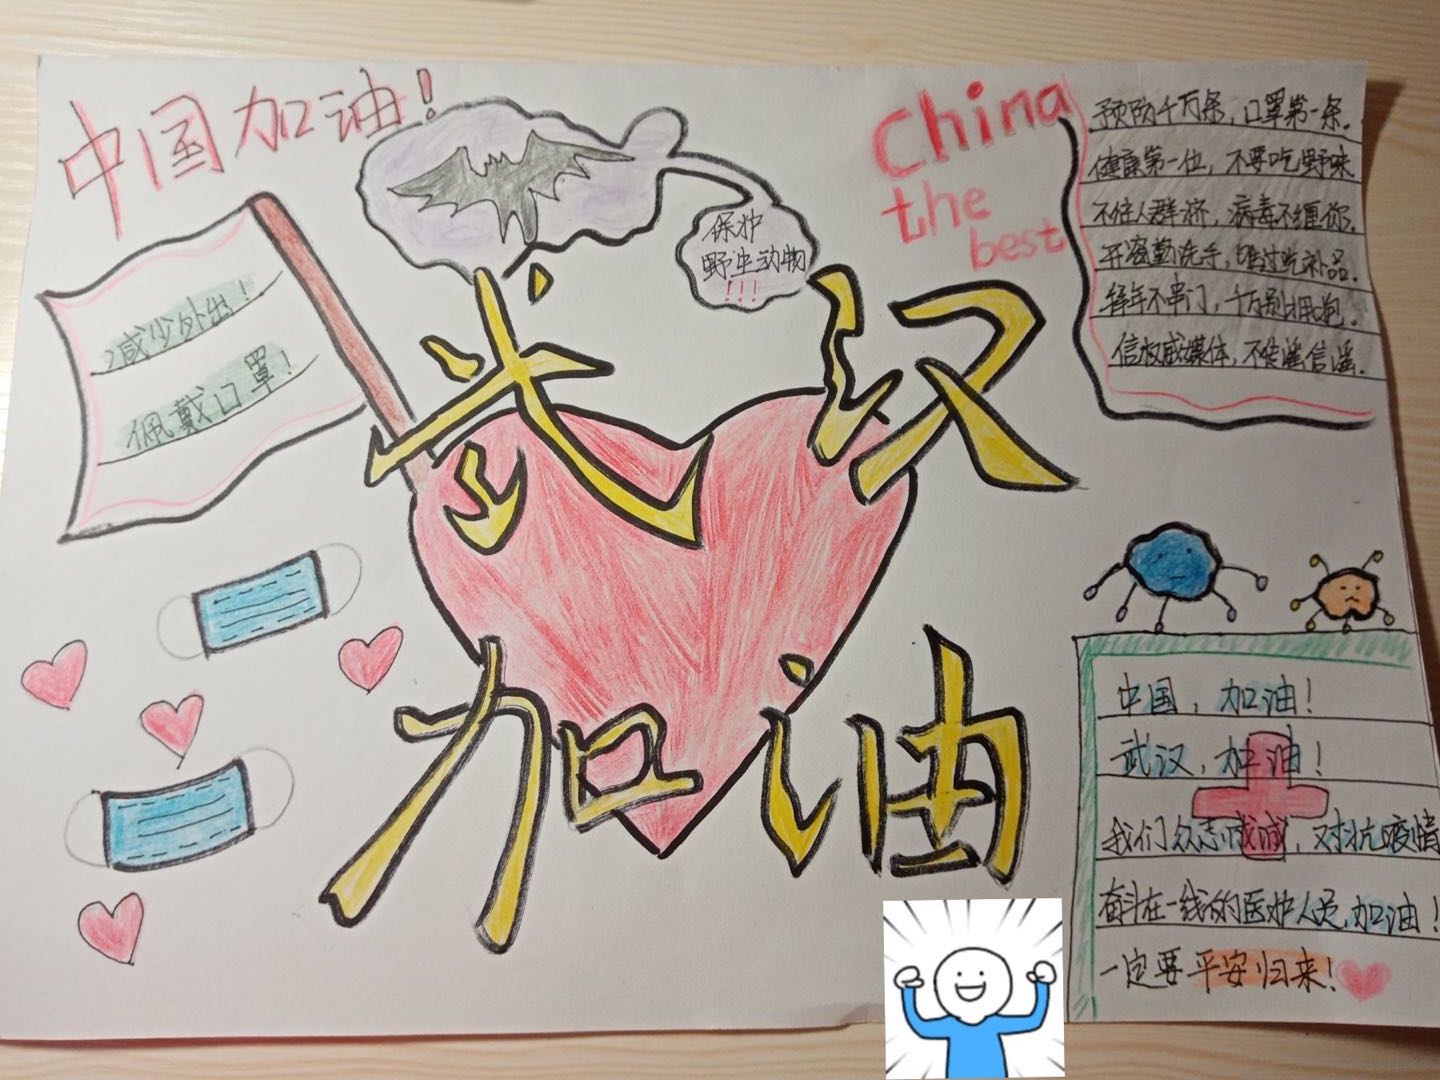 中国加油！
China
the
best
预防千万条，口罩第一条.
健康第一位，不要吃野味
不往人群挤，病毒不缠你.
开窗勤洗手，胜过吃补品.
拜年不串门，千万别拥抱.
信权威媒体，不传谣信谣.
保护
野生动物
!!!
减少外出！
佩戴口罩！
武汉
加油
中国，加油！
武汉，加油！
我们众志成城，对抗疫情
奋斗在一线的医护人员,加油！
一定要平安归来！